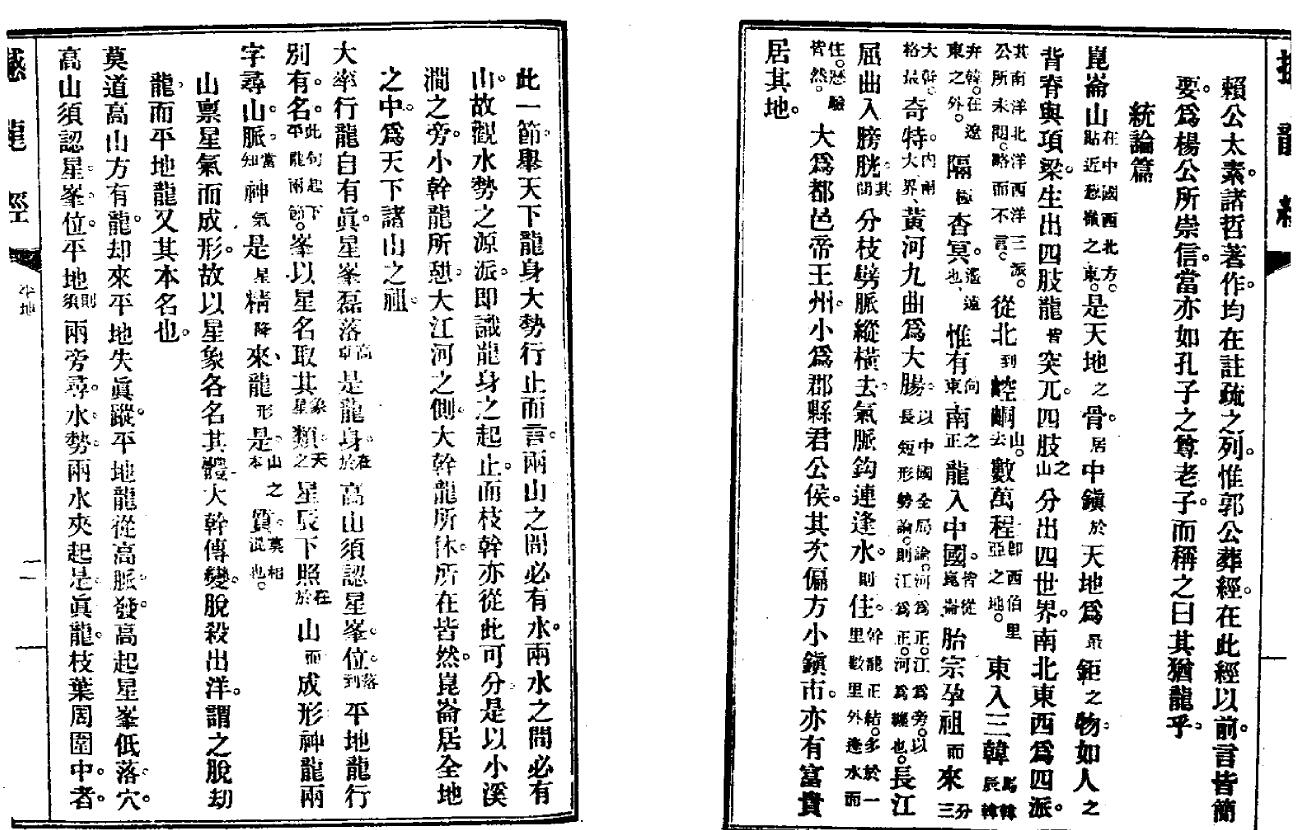 賴公太素諸哲著作。均在註疏之列。惟郭公葬經。在此經以前。言皆簡
要。爲楊公所崇信。當亦如孔子之尊老子。而稱之曰其猶龍乎。
統論篇
崑崙山在中國西北方。貼近葱嶺之東。是天地之骨。居中鎭於天地爲最鉅之物。如人之
背脊與項梁。生出四肢龍皆突兀。四肢之山分出四世界。南北東西爲四派。
其南洋北洋西洋三派。公所未閱。略而不言。從北到崆峒山。去數萬程卽西伯里亞之地。東入三韓馬韓辰韓
弁韓。在遼東之外。隔極杳冥。遙遠也、惟有向東南正之龍入中國。皆從崑崙胎宗孕祖而來三分
大幹。格最奇特。內兩大界、黃河九曲爲大腸。以中國全局論。河爲正。江爲旁。以長短形勢論。則江爲正。河爲纏也。長江
屈曲入膀胱。其間分枝劈脈縱橫去。氣脈鈎連逢水。則住。幹龍正結。多於一里數里外逢水而
住。歷驗皆然。大爲都邑帝王州。小爲郡縣君公侯。其次偏方小鎭市。亦有富貴
居其地。
此一節。舉天下龍身大勢行止而言。兩山之間必有水。兩水之間必有
山。故觀水勢之源派。卽識龍身之起止。而枝幹亦從此可分。是以小溪
澗之旁。小幹龍所憩。大江河之側。大幹龍所休。所在皆然。崑崙居全地
之中。爲天下諸山之祖。
大率行龍自有眞。星峯磊落高卓是龍身。在於高山須認星峯。位。落到平地龍行
別有。名。此句起下平龍兩節。峯以星名取其象星類。天之星辰下照在於山而成形神龍兩
字尋山。脈。當知神氣是星精降來、龍形是。山本之質。莫相混也。
山禀星氣而成形。故以星象各名其體。大幹傳變。脫殺出洋。謂之脫劫
龍。而平地龍又其本名也。
莫道高山方有龍。却來平地失眞蹤。平地龍從高脈。發。高起星峯低落。穴。
高山須認星。峯。位。平地則須兩旁尋。水。勢。兩水夾起是。眞龍。枝葉周圍中。者。
龍
經
平地
二